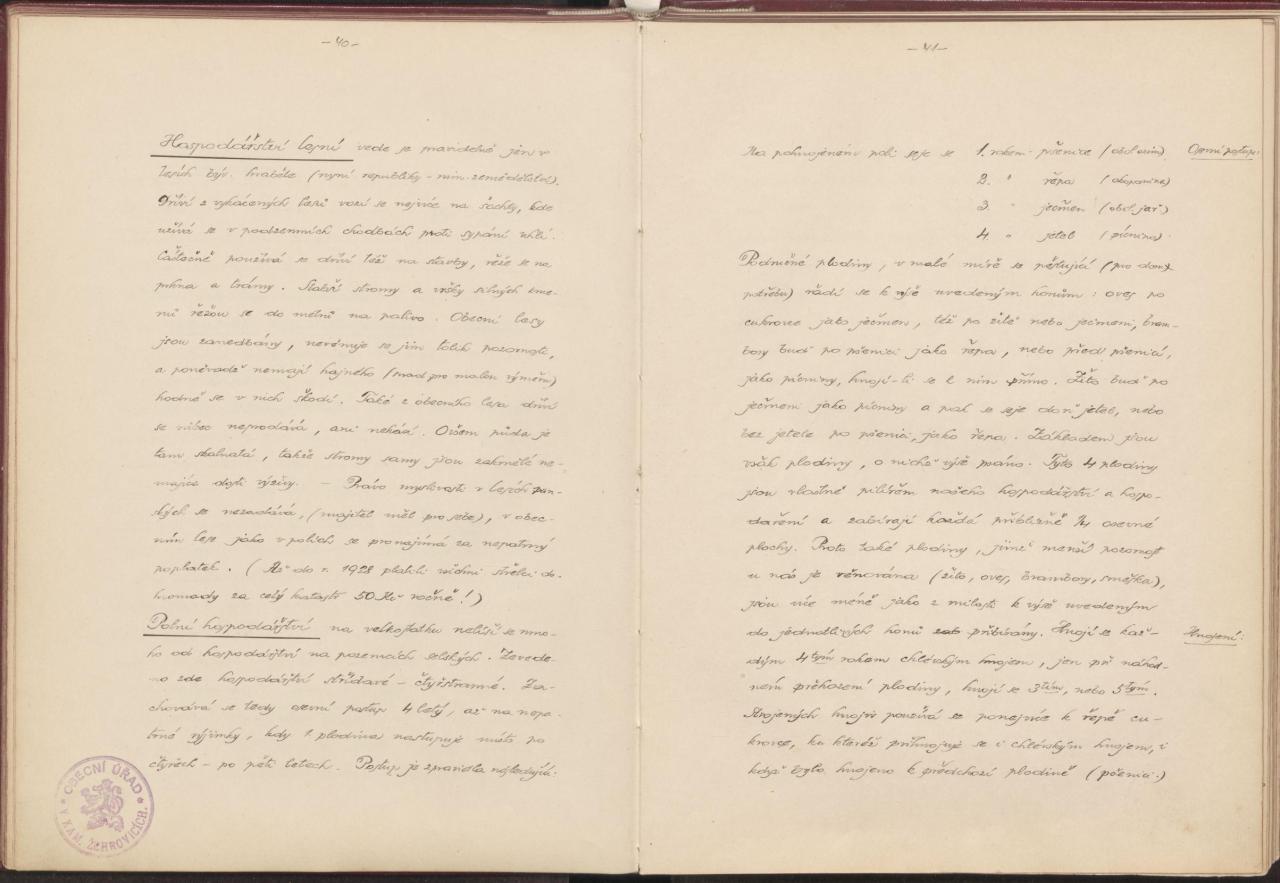 - 40 -
Hospodářství lesní vede se pravidelně jen v
lesích býv. hraběte (nyní republiky - min. zemědělství).
Dříví z vykácených lesů vozí se nejvíce na šachty, kde
užívá se v podzemních chodbách proti sypání uhlí.
Částečně používá se dříví též na stavby, řeže se na
prkna a trámy. Slabší stromy a vršky silných kme-
nů řežou se do metrů na palivo. Obecní lesy
jsou zanedbány, nevěnuje se jim tolik pozornosti,
a poněvadž nemají hajného (snad pro malou výměru)
hodně se v nich škodí. Také z obecního lesa dříví
se vůbec neprodává, ani nekácí. Ovšem půda je
tam skalnatá, takže stromy samy jsou zakrnělé ne-
majíce dosti výživy. - Právo myslivosti v lesích pan-
ských se nezadává, (majitel měl pro sebe), v obec-
ním lese jako v polích se pronajímá za nepatrný
poplatek. (Až do r. 1928 platili všichni střelci do-
hromady za celý katastr 50 Kč ročně!)
Polní hospodářství na velkostatku neliší se mno-
ho od hospodářství na pozemcích selských. Zavede-
no zde hospodářství střídavé - čtyřstranné. Za-
chovává se tedy osevní postup 4 letý, až na nepa-
trné výjimky, kdy 1 plodina nastupuje místo po
čtyřech - po pěti letech. Postup je zpravidla následující:
OBECNÍ ÚŘAD
V KAM. ŽEHROVICÍCH.
- 41 -
Na pohnojeném poli seje se 1. rokem pšenice (obil. ozim) Osevní postup:
2. " řepa (okopanina)
3. " ječmen (obil. jař)
4. " jetel (pícnina).
Podružné plodiny, v malé míře se pěstující (pro dom.
potřebu) řadí se k výše uvedeným honům: oves po
cukrovce jako ječmen, též po žitě nebo ječmeni, bram-
bory buď po pšenici jako řepa, nebo před pšenicí,
jako pícniny, hnojí-li se k nim přímo. Žito buď po
ječmeni jako pícniny a pak se seje do ň jetel, nebo
bez jetele po pšenici, jako řepa. Základem jsou
však plodiny, o nichž výše psáno. Tyto 4 plodiny
jsou vlastně pilířem našeho hospodářství a hospo-
daření a zabírají každá přibližně 1/4 osevné
plochy. Proto také plodiny, jimž menší pozornost
u nás je věnována (žito, oves, brambory, směska),
jsou více méně jako z milosti k výše uvedeným
do jednotlivých honů přibírány. Hnojí se kaž- Hnojení:
dým 4tým rokem chlévským hnojem, jen při náhod-
ném přehození plodiny, hnojí se 3tím, nebo 5tým.
Strojených hnojiv používá se ponejvíce k řepě cu-
krovce, ku kteréž přihnojuje se i chlévským hnojem, i
když bylo hnojeno k předchozí plodině (pšenici.)